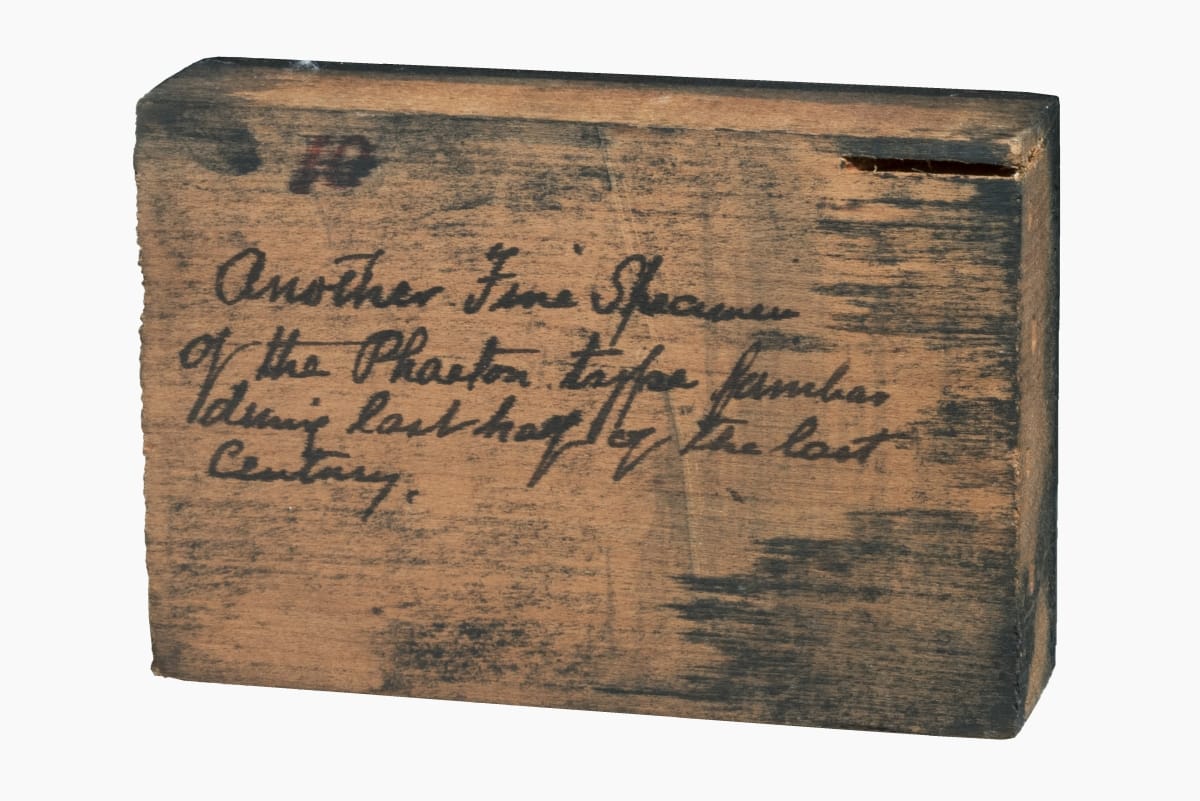 Another Fine Specimen
of the Phaeton type familiar
during last half of the last
Century.